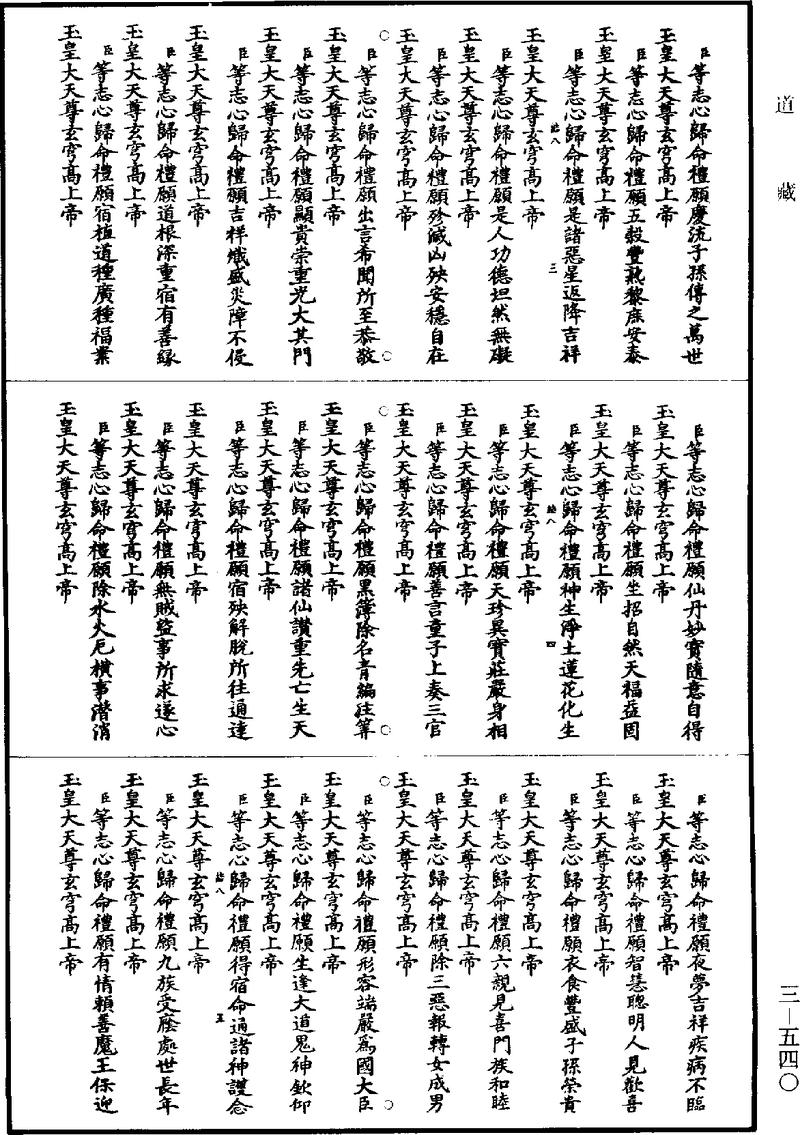 道藏
臣等志心歸命禮願慶流子孫傳之萬世
玉皇大天尊玄穹高上帝
臣等志心歸命禮願五穀豐熟黎庶安泰
玉皇大天尊玄穹高上帝
臣等志心歸命禮願是諸惡星返降吉祥
玉皇大天尊玄穹高上帝
臣等志心歸命禮願是人功德坦然無礙
玉皇大天尊玄穹高上帝
臣等志心歸命禮願殄滅凶殃安穩自在
玉皇大天尊玄穹高上帝
臣等志心歸命禮願出言希聞所至恭敬
玉皇大天尊玄穹高上帝
臣等志心歸命禮願顯貴崇重光大其門
玉皇大天尊玄穹高上帝
臣等志心歸命禮願吉祥熾盛災障不侵
玉皇大天尊玄穹高上帝
臣等志心歸命禮願道根深重宿有善緣
玉皇大天尊玄穹高上帝
臣等志心歸命禮願宿植道種廣種福業
玉皇大天尊玄穹高上帝
臣等志心歸命禮願仙丹妙寶隨意自得
玉皇大天尊玄穹高上帝
臣等志心歸命禮願生招自然天福益固
玉皇大天尊玄穹高上帝
臣等志心歸命禮願神生淨土蓮花化生
玉皇大天尊玄穹高上帝
臣等志心歸命禮願天珍異寶莊嚴身相
玉皇大天尊玄穹高上帝
臣等志心歸命禮願善言童子上奏三官
玉皇大天尊玄穹高上帝
臣等志心歸命禮願黑簿除名青編注筭
玉皇大天尊玄穹高上帝
臣等志心歸命禮願諸仙讚重先亡生天
玉皇大天尊玄穹高上帝
臣等志心歸命禮願宿殃解脫所往通達
玉皇大天尊玄穹高上帝
臣等志心歸命禮願無賊盜事所求遂心
玉皇大天尊玄穹高上帝
臣等志心歸命禮願除水火厄橫事潛消
玉皇大天尊玄穹高上帝
臣等志心歸命禮願夜夢吉祥疾病不臨
玉皇大天尊玄穹高上帝
臣等志心歸命禮願智慧聰明人見歡喜
玉皇大天尊玄穹高上帝
臣等志心歸命禮願衣食豐盛子孫榮貴
玉皇大天尊玄穹高上帝
臣等志心歸命禮願六親見喜門族和睦
玉皇大天尊玄穹高上帝
臣等志心歸命禮願除三惡報轉女成男
玉皇大天尊玄穹高上帝
臣等志心歸命禮願形容端嚴為國大臣
玉皇大天尊玄穹高上帝
臣等志心歸命禮願生逢大道鬼神欽仰
玉皇大天尊玄穹高上帝
臣等志心歸命禮願得宿命通諸神護念
玉皇大天尊玄穹高上帝
臣等志心歸命禮願九族受蔭處世長年
玉皇大天尊玄穹高上帝
臣等志心歸命禮願有情賴善魔王保迎
玉皇大天尊玄穹高上帝
三—五四〇